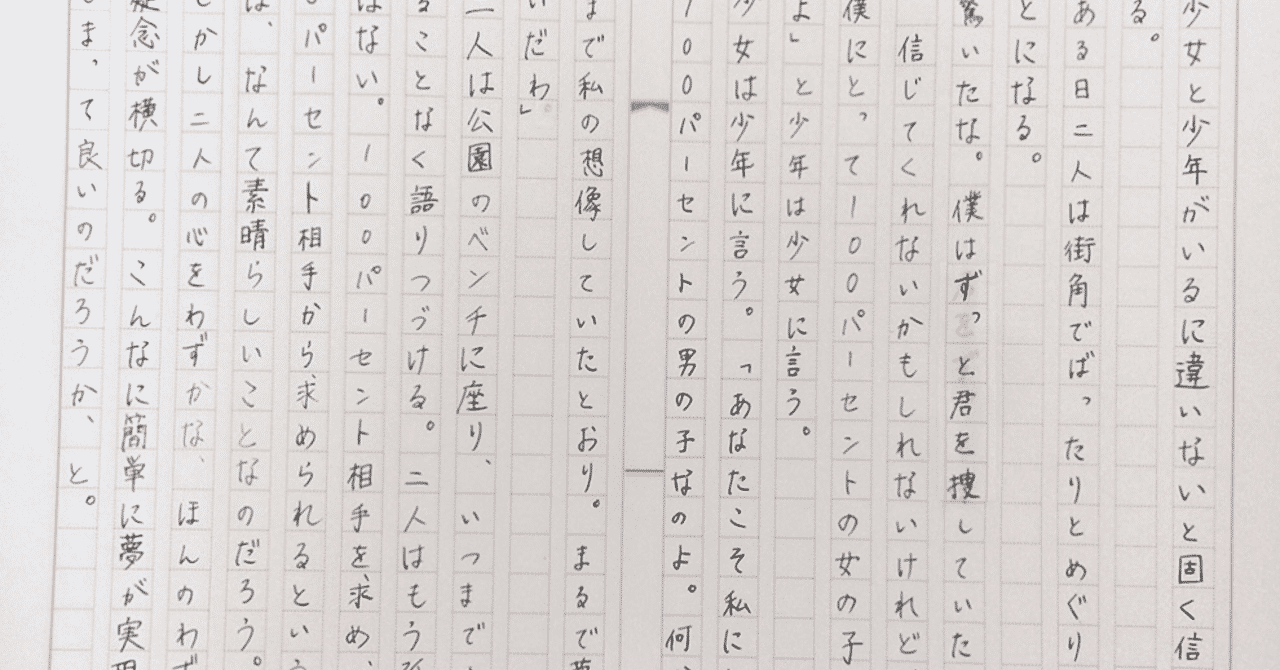 少女と少年がいるに違いないと固く信
る。
ある日二人は街角でばったりとめぐり
とになる。
驚いたな。僕はずっと君を捜していた
信じてくれないかもしれないけれど
僕にとって100パーセントの女の子
よ」と少年は少女に言う。
少女は少年に言う。「あなたこそ私に
100パーセントの男の子なのよ。何
まで私の想像していたとおり。まるで夢
いだわ」
二人は公園のベンチに座り、いつまで
ることなく語りつづける。二人はもう孤
はない。100パーセント相手を求め、
0パーセント相手から求められるという
は、なんて素晴らしいことなのだろう。
しかし二人の心をわずかな、ほんのわず
疑念が横切る。こんなに簡単に夢が実現
しまって良いのだろうか、と。